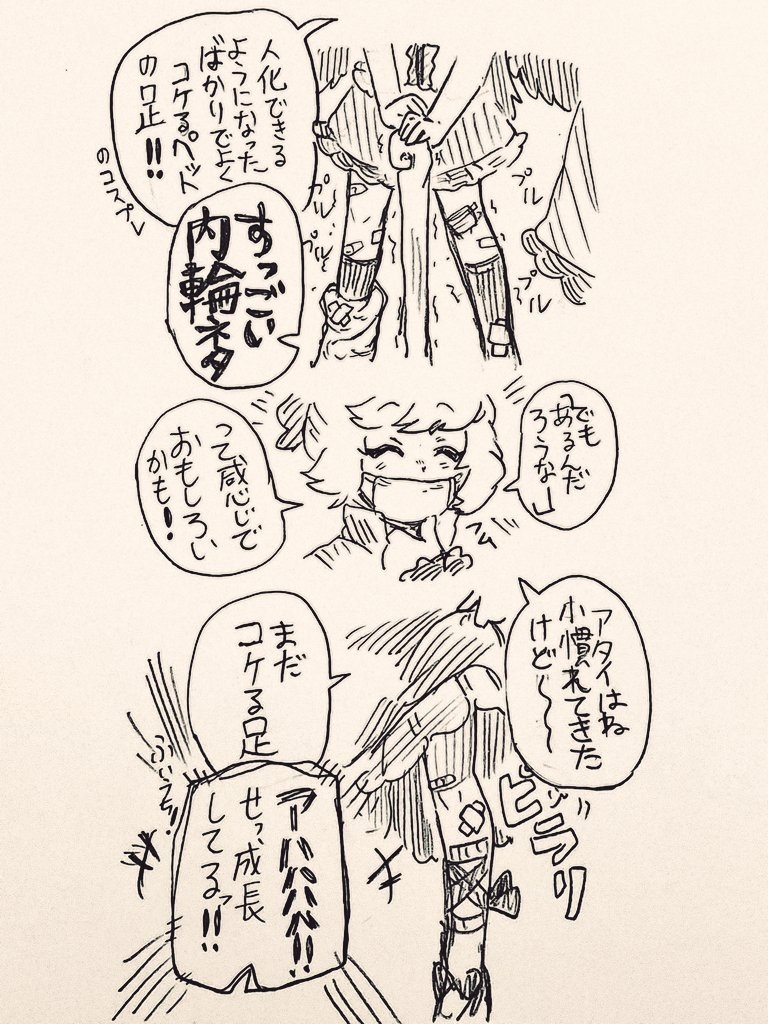 人化できる
ようになった
ばかりでよく
コケるペット
の足!!
のコスプレ
すっごい
内輪ネタ
プルプル
プルプル
プル
プル
でも
「あるんだ
ろうなー」
って感じで
おもしろい
かも!
アタイはね
小慣れてきた
けど〜〜〜
まだ
コケる足
ピラリ
アーハハハハ!!
せっ、成長
してるっ!!